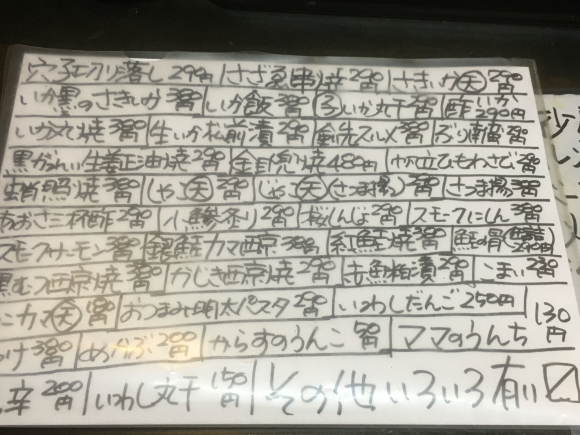 穴子切り落し 290円 さざえ串焼 290円 さきいか天 290円
いか黒のさきいか 390円 いか飯 390円 いか丸干 290円 酢いか 290円
いか丸焼 390円 生いか松前漬 290円 剣先スルメ 390円
黒がれい生姜正油焼 290円 金目兜焼 480円 帆立ひもわさび
照焼 390円 しゃこ天 じゃこ天(さつま揚) さつま揚 390円
あおさ三杯酢 290円 小鯵 290円 桜しんじょ 290円 スモークにしん 390円
スモークサーモン 390円 銀鮭カマ西京 390円 紅鮭焼 390円 鮭の骨
黒むつ西京焼 390円 かじき西京焼 290円 赤魚粕漬 290円 こまい
おつまみ明太パスタ 290円 いわしだんご 250円
390円 めかぶ 200円 からすのうんこ ママのうんち 130円
辛 200円 いわし丸干 150円 その他いろいろ有り〼